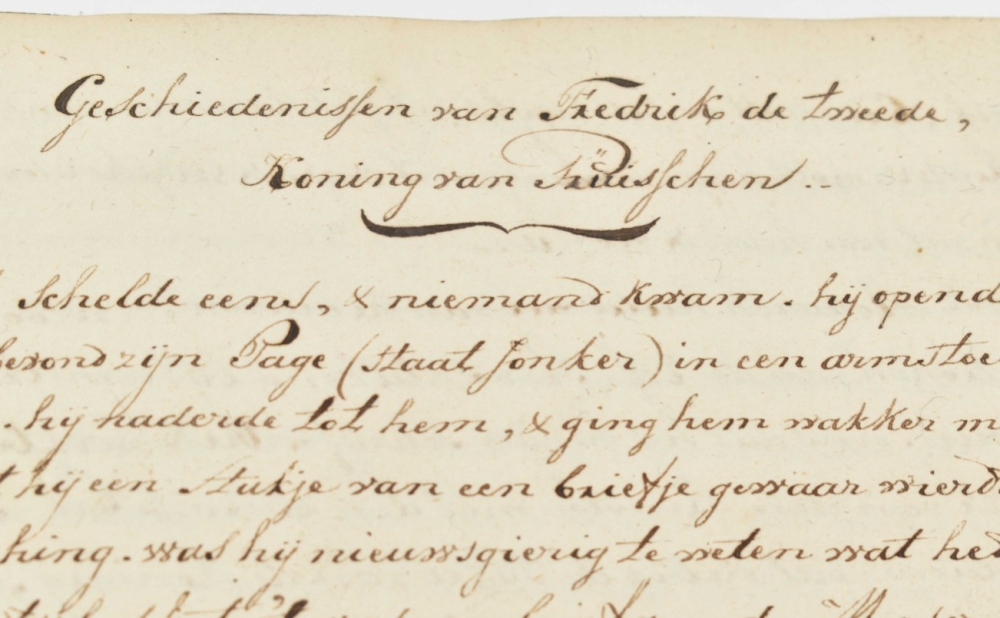 Geschiedenissen van Fredrik de tweede,
Koning van Pruisschen..
schelde eens, & niemand kwam. hij opend
bevond zijn Page (Staat Jonker) in een armstoe
. hij naderde tot hem, & ging hem wakker m
t hij een stukje van een briefje gewaar wierd
hing. was hij nieuwsgierig te weten wat he